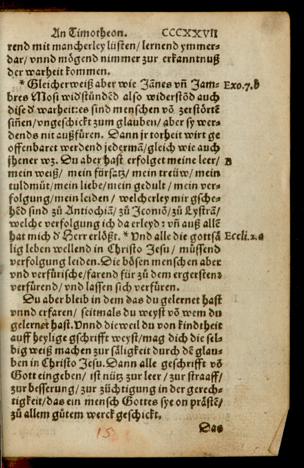 An Timotheon. CCCXXVII
rend mit mancherley lüsten/ lernend ymmer-
dar/ vnnd mögend nimmer zur erkanntnuß
der warheit kommen.
* Gleicherweiß aber wie Jānes vn̄ Jam- Exo.7.b
bres Mosi widstůndēd also widerstōd auch
dise d' warheit: es sind menschen vō zerstörtē
sinnen/ vngeschickt zum glauben/ aber sy wer-
dends nit außfüren. Dann jr torheit wirt ge
offenbaret werdend jedermā/ gleich wie auch
jhener wz. Du aber hast erfolget meine leer/ B
mein weiß/ mein fürsatz/ mein treüw/ mein
tuldmůt/ mein liebe/ mein gedult/ mein ver-
folgung/ mein leiden/ welcherley mir gsche-
hēd sind zů Antiochiā/ zů Iconiō/ zů Lystrā/
welche verfolgung ich da erleyd: vn̄ auß allē
hat mich d' Herr erlößt. * Vnd alle die gottsā Eccli.2.a
lig leben wellend in Christo Jesu/ müssend
verfolgung leiden. Die bösen menschen aber
vnd verfürische/ farend für zů dem ergersten:
verfürend/ vnd lassen sich verfüren.
Du aber bleib in dem das du gelernet hast
vnnd erfaren/ seitmals du weyst vō wem du
gelernet hast. Vnnd dieweil du von kindtheit
auff heylige gschrifft weyst/ mag dich die sel-
big weiß machen zur säligkeit durch dē glau-
ben in Christo Jesu. Dann alle geschrifft vō
Gott eingeben/ ist nütz zur leer/ zur straaff/
zur besserung/ zur züchtigung in der gerech-
tigkeit/ das ein mensch Gottes sye on prästē/
zů allem gůtem werck geschickt.
Das